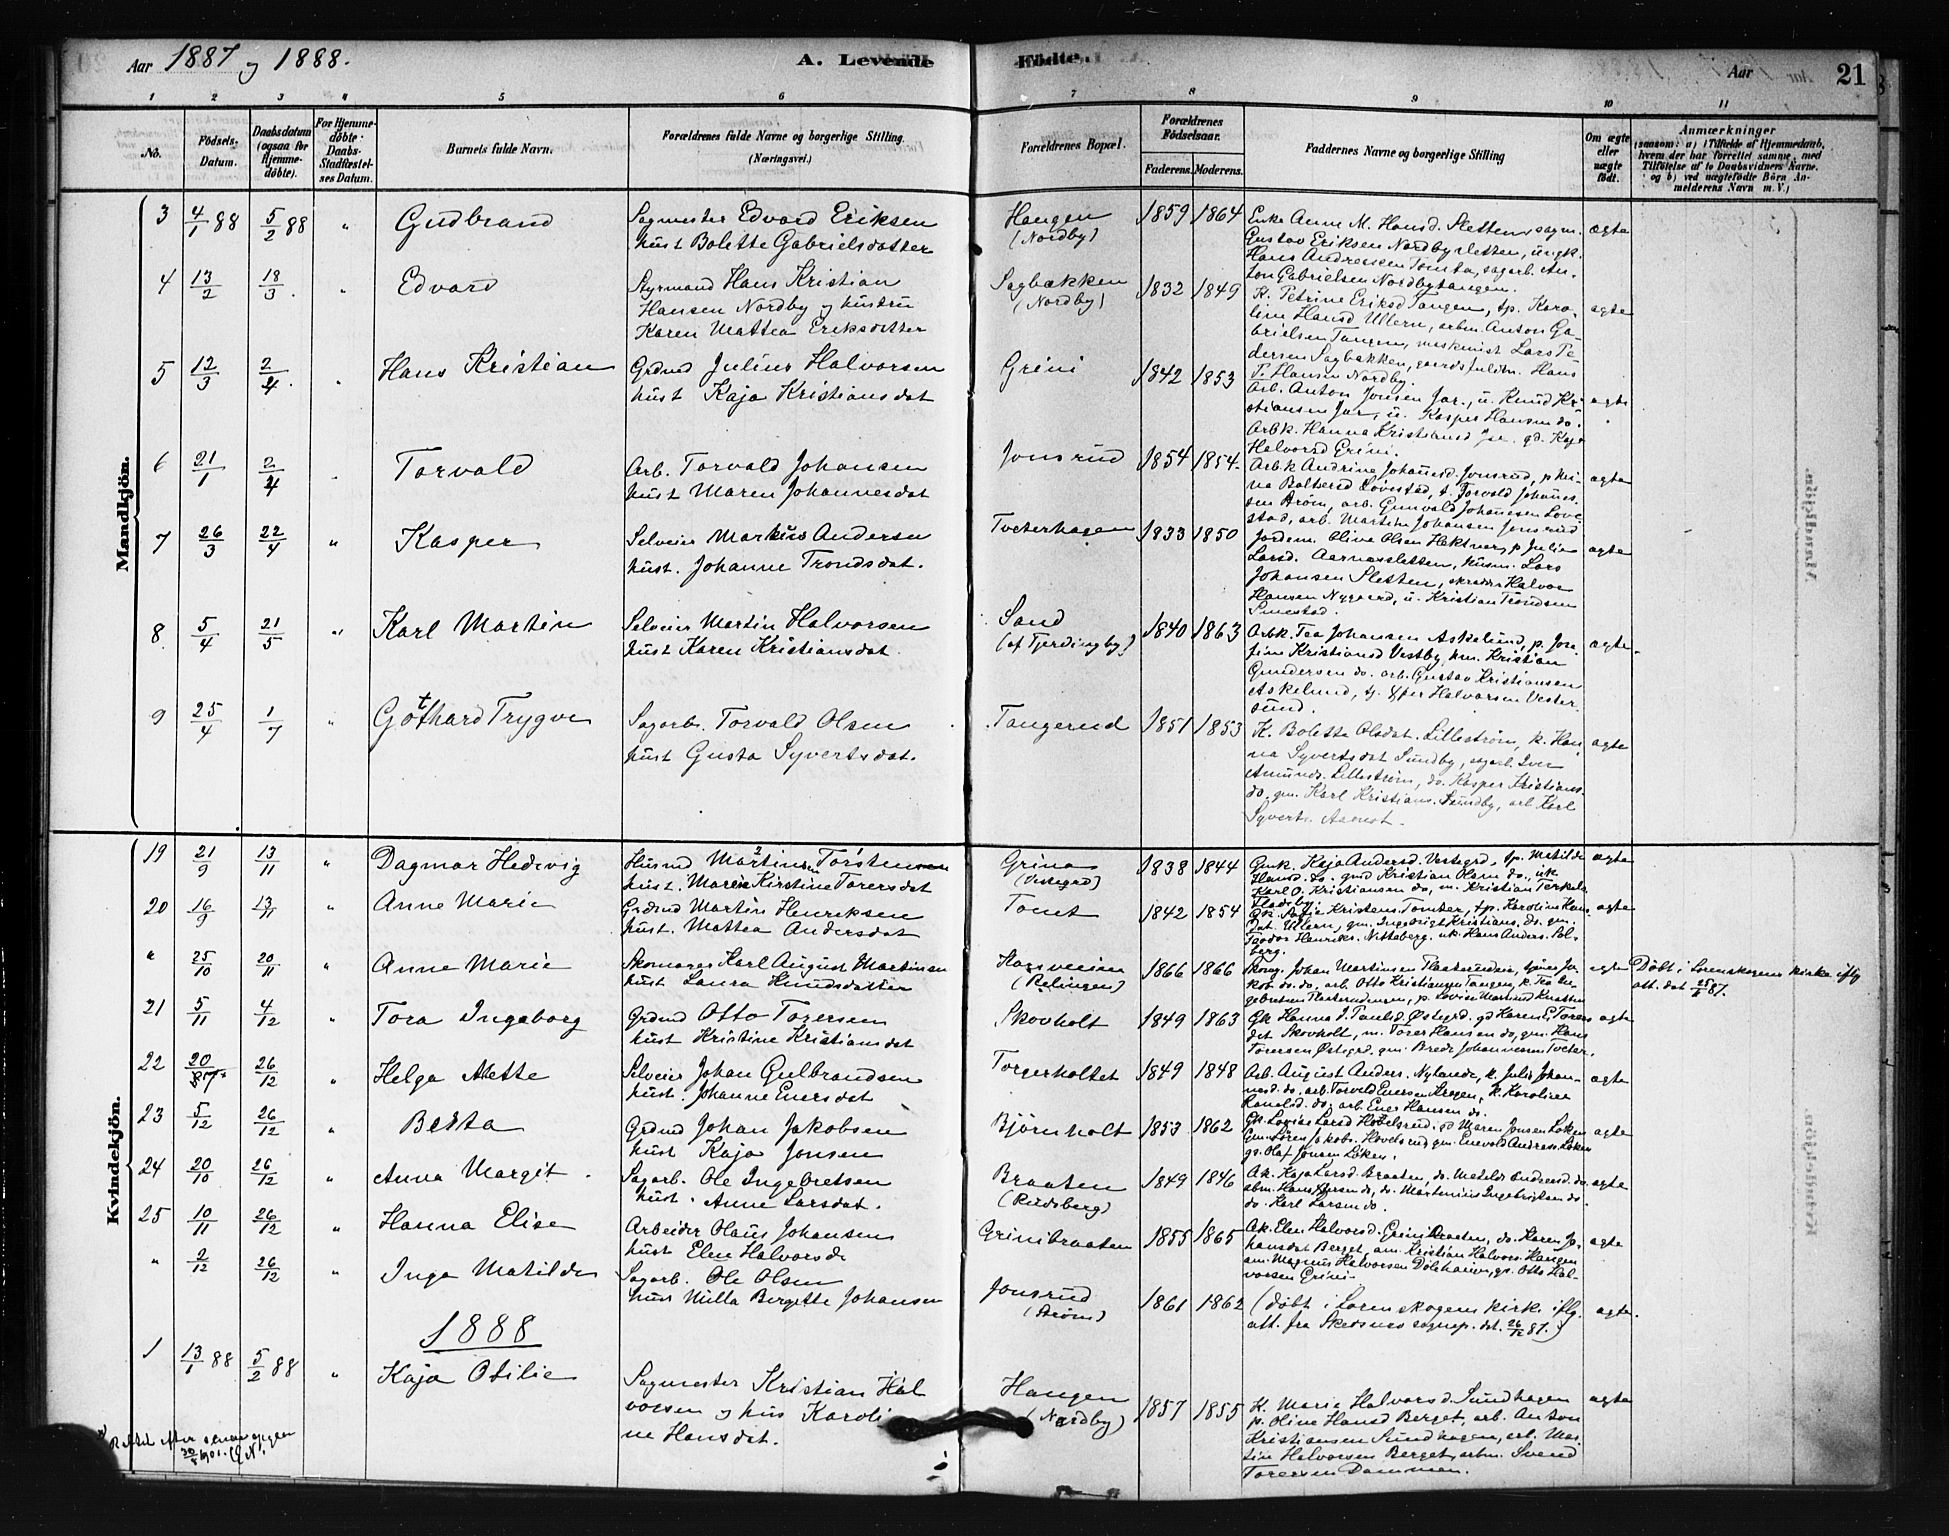 Aar 1887 og 1888.
A. Levende
Födte.
Aar
21
1 2 3 4 5 6 7 8 9 10 11
No.
Födsels-Datum.
Daabsdatum (ogsaa for Hjemme-döbte).
For Hjemme-döbte: Daabs-Stadfæstel-ses Datum.
Barnets fulde Navn.
Forældrenes fulde Navne og borgerlige Stilling.
(Næringsvei.)
Forældrenes Bopæl.
Forældrenes Födselsaar.
Faderens. Moderens.
Faddernes Navne og borgerlige Stilling
Om ægte eller uægte födt.
Anmærkninger
(saasom: a) i Tilfælde af Hjemmedaab,
hvem der har forrettet samme, med
Tilföielse af to Daabsvidners Navne.
og b) ved uægtefödte Börn An-
melderens Navn m. V.)
Mandkjön.
3 4/1 88 5/2 88 " Gudbrand
Sagmester Edvard Eriksen
hust Bolette Gabrielsdatter
Haugen (Nordby) 1859 1864
Enke Anne M. Hansd. Sletten, sagm.
Gustav Eriksen Nordbysletten, ungk.
Hans Andreassen Tomta, sagarb. An-
ton Gabrielsen Nordbytangen.
ægte
4 13/2 18/3 " Edvard
Styrmand Hans Kristian
Hansen Nordby og hustru
Karen Mattea Eriksdatter
Sagbakken (Nordby) 1832 1849
K. Petrine Eriksd Tangen, tp. Karo-
line Hansd Ullern, arbm. Anton Ga-
brielsen Tangen, maskinist Lars Pe-
dersen Sagbakken, gaardsfuldm. Hans
P. Hansen Nordby.
ægte
5 12/3 2/4 " Hans Kristian
Grdmd Julius Halvorsen
hust Kaja Kristiansdat
Grini 1842 1853
Arb. Anton Jensen Jar., u. Knud Kri-
stiansen Jar, u. Kasper Hansen do.
Arbk. Hanna Kristiansd Jar. gd. Kaja
Halvorsd Grini.
ægte
6 21/1 2/4 " Torvald
Arb. Torvald Johansen
hust Maren Johannesdat
Jonsrud 1854 1854
Arbk Andrine Johannesd. Jonsrud, p. Kri-
na Baltersd Lövestad, t. Torvald Johannes-
sen Ström, arb. Gunvald Johannesen Löve-
stad, arb. Martin Johansen Jonsrud
ægte
7 26/3 22/4 " Kasper
Selveier Markus Andersen
hust. Johanne Trondsdat.
Tveterhagen 1833 1850
Jordem. Oline Olsen Hektner, p Julie
Larsd. Aarnæssletten, husm. Lars
Johansen Sletten, skrædder Halvor
Hansen Nygaard, u. Kristian Trondsen
Smestad.
ægte
8 5/4 21/5 " Karl Martin
Selveier Martin Halvorsen
hust Karen Kristiansdat.
Sand (af Fjerdingby) 1840 1863
Arbk. Tea Johansen Askelund, p. Jose-
fine Kristiansd Vestby, hm. Kristian
Gundersen do. arb. Gustav Kristiansen
Askelund, Halvorsen Vester-
sund.
ægte
9 25/4 1/7 " Gotthard Trygve
Sagarb. Torvald Olsen
hust Gusta Syvertsdat.
Tangerud 1851 1853
K. Bolette Olsdat. Lilleström, k. Han-
na Syvertsdat Sundby, sagarb. Iver
Amunds. Lilleström, do. Kasper Kristians.
do. gm. Karl Kristians. Sundby, arb Karl
Syverts.
ægte
Kvindekjön.
19 21/9 13/11 " Dagmar Hedevig
Husmd Martinus Torstensen
hust. Maren Kirstine Torersdat
Grina (Vestegrd) 1838 1844
Gmk. Kaja Andersd. Vestegrd., tp. Matilde
Hansd. do. gmd Kristian Olsen do., uk
Karl O. Kristiansen do, m. Kristian Terkels.
Fladeby.
ægte
20 16/9 13/11 " Anne Marie
Grdmd Martin Henriksen
hust. Mattea Andersdat
Tomt 1842 1854
Kristens. Tomter, tp. Karoline Han-
dat. Ullern, gm. Ingebrigt Kristians. do. gm.
Teodor Henriks. Nitteberg. uk. Hans Anders. Sol-
berg.
ægte
" 25/10 20/11 " Anne Marie
Skomager Karl August Martinsen
hust Laura Knudsdatter
(Relingen) 1866 1866
Skomg. Johan Martinsen
kob do. do, arb. Otto Kristiansen Tangen, k. Tea In-
gebretsen
ægte
Döbt i Lorenskogens kirke iflg
att. dat 87.
21 5/11 4/12 " Tora Ingeborg
Grdmd Otto Torersen
hust Kristine Kristiansdat
Skovholt 1849 1863
Gk Hanna J. Paulsd. Østegrd. gd Karen E. Torers
dat Skovholt, m. Torer Hansen do, gm. Hans
Torersen Østegrd. gm. Brede Johannesen Tveter.
ægte
22 20/ 26/12 " Helga Mette
Selveier Johan Gulbrandsen
hust. Johanne Enersdat
Torgerholtet 1849 1848
Arb. August Anders. Nylænde, k. Julie Johan-
nesd. do. arb. Torvald Enersen Kragen, k. Karoline
do, arb. Ener Hansen do.
ægte
23 5/12 26/12 " Berta
Grdmd Johan Jakobsen
hust Kaja Jensen
Björnholt 1853 1862
Gk. Lovise Larsd Hovelsrud, gd Maren Jensen Löken
Gm. Sören Jakobs. Hovelsrud gm Enevold Andreas. Löken
gs. Olaf Jensen Löken.
ægte
24 20/10 26/12 " Anna Margit
Sagarb. Ole Ingebretsen
hust. Anne Larsdat.
Braaten (Rudsberg) 1849 1846
Ak. Kaja Larsd. Braaten, do. Matilde Andersd. do
do, do. Martinius Ingebrigtsen do
do. Karl Larsen do.
ægte
25 10/11 26/12 " Hanna Elise
Arbeider Olaus Johansen
hust Elen Halvorsd.
Grinibraaten 1855 1865
Ak. Elen Halvorsd. Grini Braaten, do. Karen Jo-
hansdat Berget, am. Kristian Halvors. Haugen
am. Magnus Halvorsen Dölehaien, gs. Otto Hal-
vorsen Grini.
ægte
" 2/12 26/12 " Inga Matilde
Sagarb. Ole Olsen
hust Milla Bergette Johansen
Jonsrud (Ström) 1861 1862
(döbt i Lorenskogens kirke iflg.
att. fra Skedsmo sognep. dat. 26/12 87.)
ægte
1888
1 13/1 88 5/2 88 " Kaja Otilie
Sagmester Kristian Hal
vorsen og hus Karoli
ne Hansdat.
Haugen (Nordby) 1857 1855
K. Marie Halvorsd. Sundhagen
p. Oline Hansd Berget, arb. Anton
Kristiansen Sundhagen, arb. Mar-
tin Halvorsen Berget, arbm. Svend
Torersen Dammen.
ægte
Rettet efter
30/ 1901.